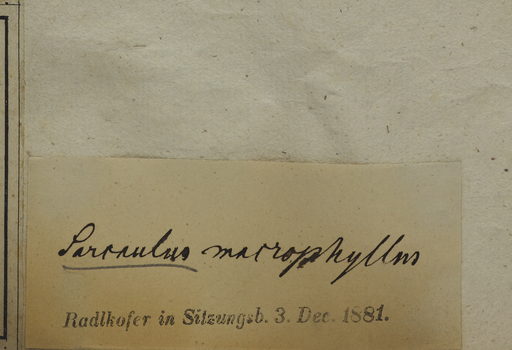 Sarcaulus macrophyllus
Radlkofer in Sitzungsb. 3. Dec. 1881.